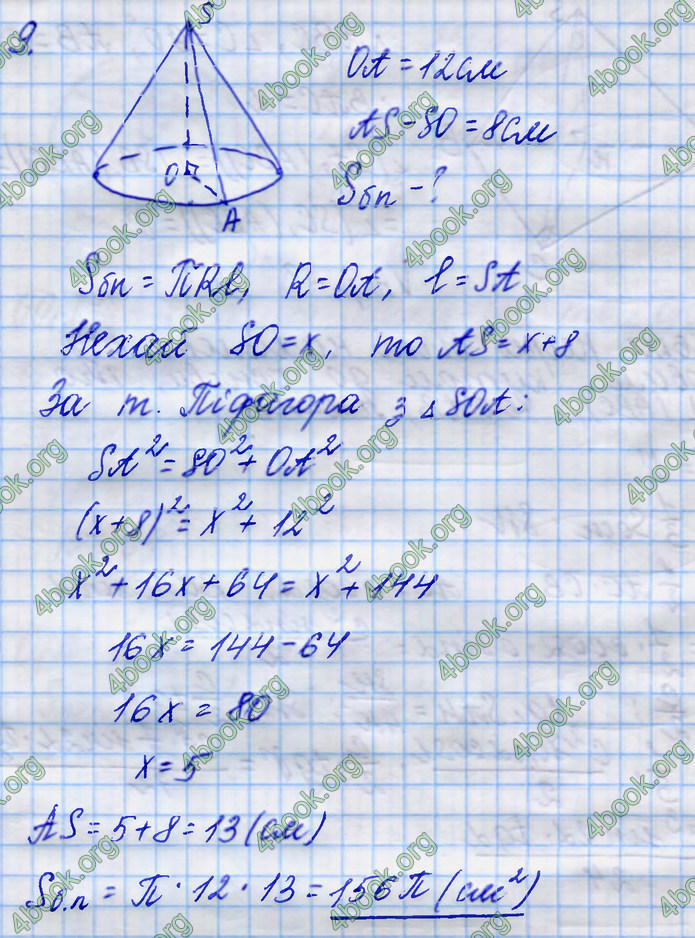 9.
S
O
A
OA = 12 см
AS - SO = 8 см
Sбп - ?
Sбп = ПRl, R = OA, l = SA
Нехай SO = x, то AS = x + 8
За т. Піфагора з △SOA:
SA² = SO² + OA²
(x + 8)² = x² + 12²
x² + 16x + 64 = x² + 144
16x = 144 - 64
16x = 80
x = 5
AS = 5 + 8 = 13 (см)
Sб.п = П · 12 · 13 = 156П (см²)
4book.org